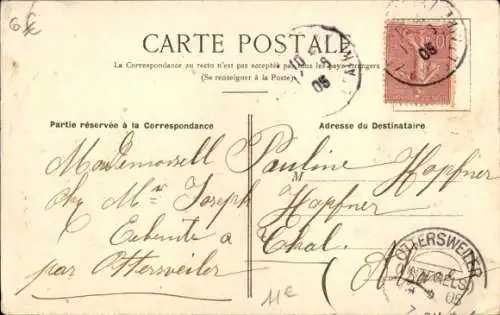 CARTE POSTALE
La Correspondance au recto n'est pas acceptée par tous les pays étrangers
(Se renseigner à la Poste)
Partie réservée à la Correspondance
Adresse du Destinataire
Mademoiselle Pauline Hopfner
chez Mr Joseph Hopfner
Ebéniste à Thal
par Ottersweiler
OTTERSWEILER
05
05
05